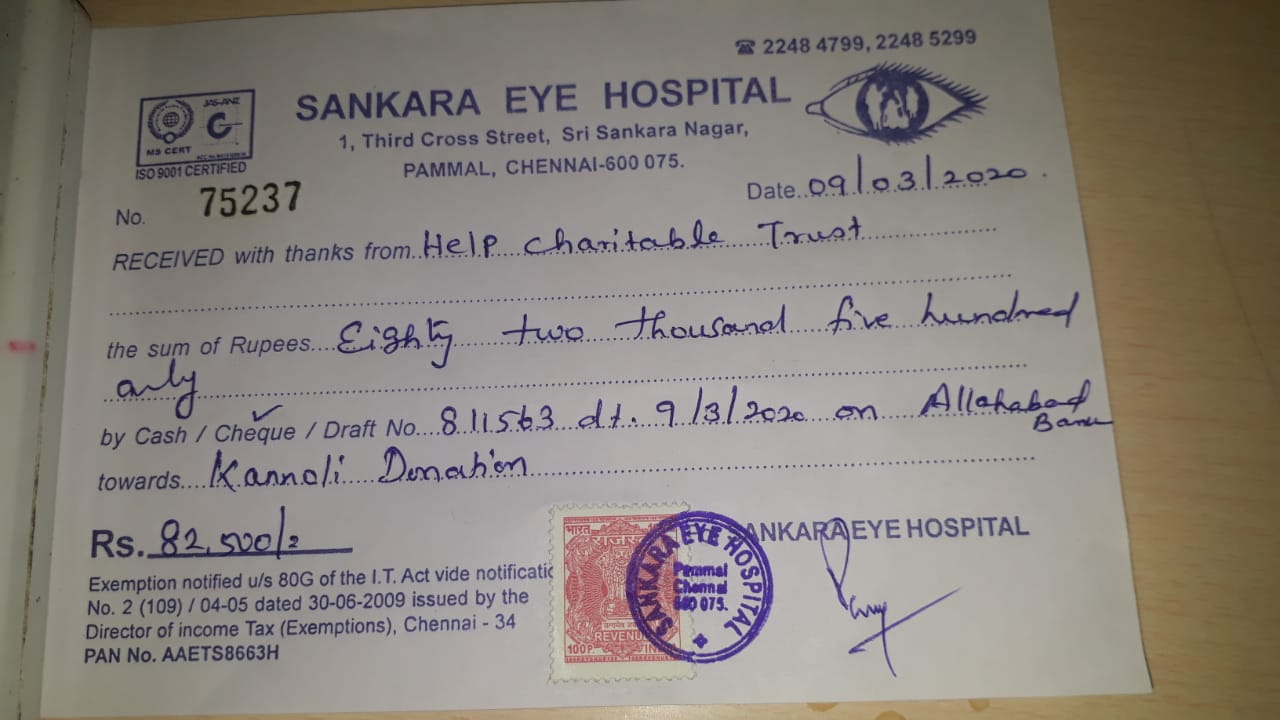 ☎ 2248 4799, 2248 5299
JAS-ANZ
C
MS CERT
ISO 9001 CERTIFIED
SANKARA EYE HOSPITAL
1, Third Cross Street, Sri Sankara Nagar,
PAMMAL, CHENNAI-600 075.
No. 75237
Date..09/03/2020.
RECEIVED with thanks from..Help Charitable Trust
the sum of Rupees....Eighty two thousand five hundred
only
by Cash / Cheque / Draft No....811563 dt. 9/3/2020 on Allahabad
Bank
towards....Kannoli Donation
Rs. 82,500/-
ANKARA EYE HOSPITAL
Exemption notified u/s 80G of the I.T. Act vide notificatio
No. 2 (109) / 04-05 dated 30-06-2009 issued by the
Director of income Tax (Exemptions), Chennai - 34
PAN No. AAETS8663H
भारत
राजस्
REVENU
100P.
SANKARA EYE HOSPITAL
Pammal
Chennai
600 075.